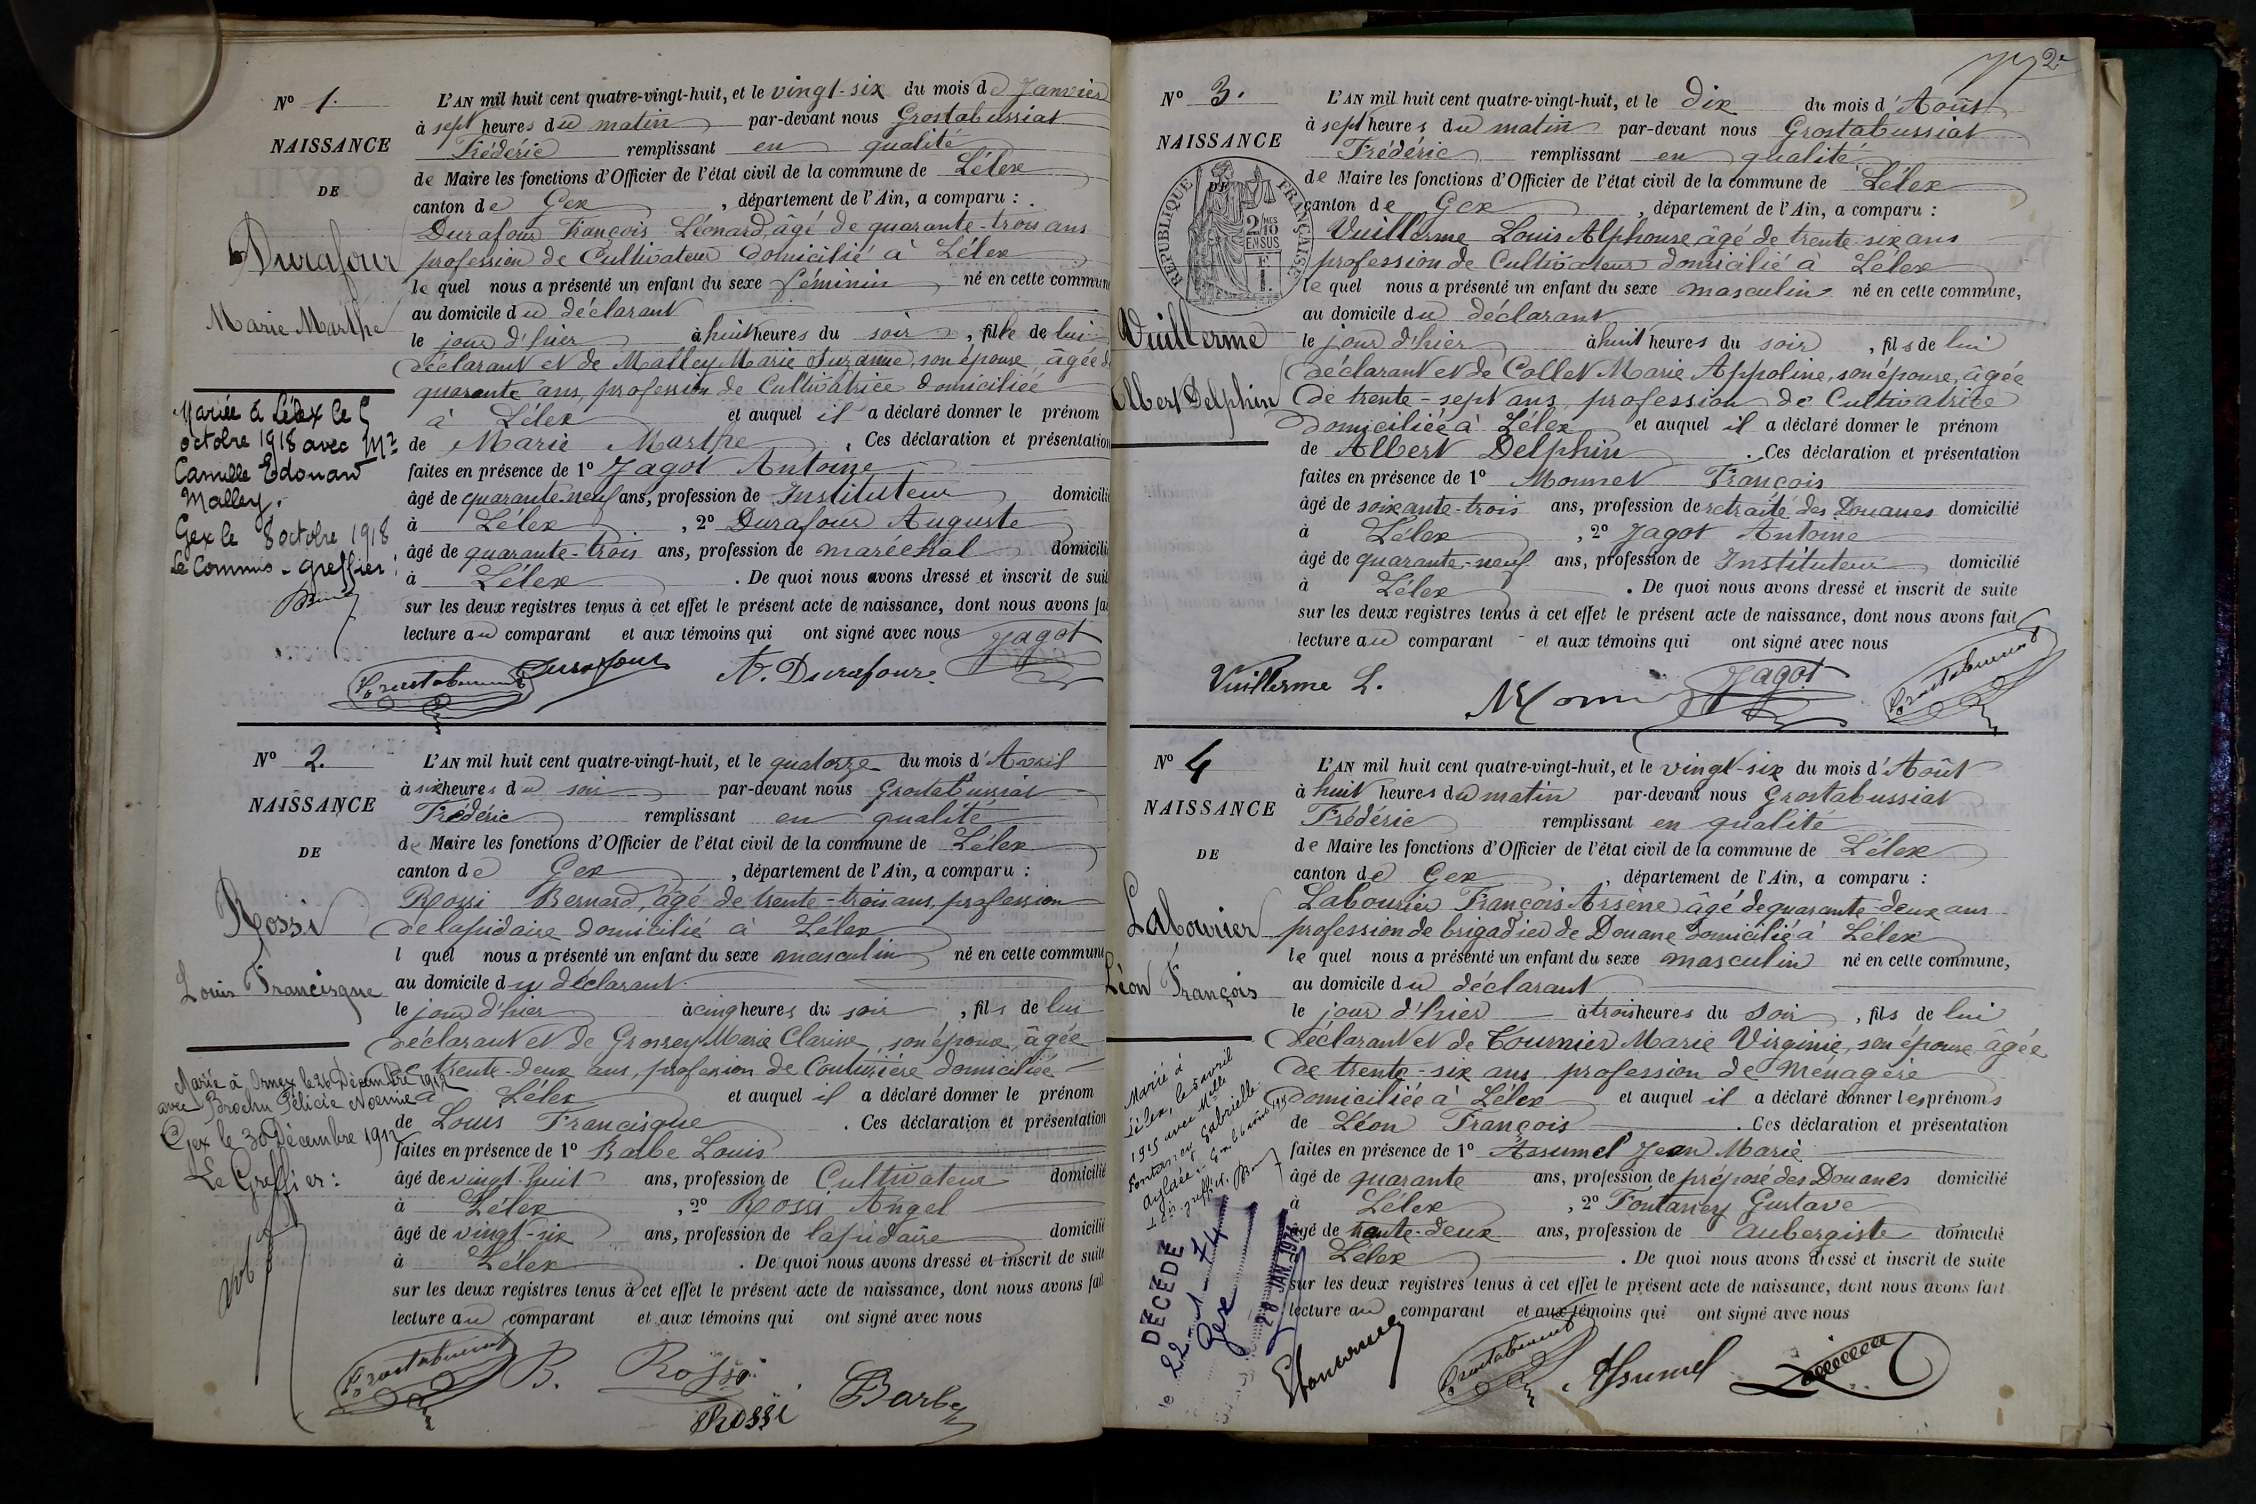 N° 1.
NAISSANCE
DE
Durafour
Marie Marthe
Mariée à Lélex le 5
octobre 1918 avec Mr
Camille Edouard
Malley.
Gex le 8 octobre 1918
Le Commis-greffier :
L'AN mil huit cent quatre-vingt-huit, et le vingt-six du mois de Janvier
à sept heures du matin par-devant nous Grostabussiat
Frédéric remplissant en qualité
de Maire les fonctions d'Officier de l'état civil de la commune de Lélex
canton de Gex, département de l'Ain, a comparu :
Durafour François Léonard, âgé de quarante-trois ans
profession de Cultivateur domicilié à Lélex
le quel nous a présenté un enfant du sexe féminin né en cette commune
au domicile du déclarant
le jour d'hier à huit heures du soir, fille de lui
déclarant et de Malley Marie Suzanne, son épouse, âgée de
quarante ans, profession de Cultivatrice domiciliée
à Lélex et auquel il a déclaré donner le prénom
de Marie Marthe. Ces déclaration et présentation
faites en présence de 1° Jagot Antoine
âgé de quarante-neuf ans, profession de Instituteur domicilié
à Lélex, 2° Durafour Auguste
âgé de quarante-trois ans, profession de maréchal domicilié
à Lélex. De quoi nous avons dressé et inscrit de suite
sur les deux registres tenus à cet effet le présent acte de naissance, dont nous avons fai
lecture au comparant et aux témoins qui ont signé avec nous Jagot
Grostabussiat Durafour A. Durafour
N° 2.
NAISSANCE
DE
Rossi
Louis Francisque
Marié à Ornex le 26 Décembre 1912
avec Brochu Félicie Noemie
Gex le 30 Décembre 1912
Le Greffier :
L'AN mil huit cent quatre-vingt-huit, et le quatorze du mois d'Avril
à six heures du soir par-devant nous Grostabussiat
Frédéric remplissant en qualité
de Maire les fonctions d'Officier de l'état civil de la commune de Lélex
canton de Gex, département de l'Ain, a comparu :
Rossi Bernard, âgé de trente-trois ans, profession
de lapidaire domicilié à Lélex
l quel nous a présenté un enfant du sexe masculin né en cette commune
au domicile du déclarant
le jour d'hier à cinq heures du soir, fils de lui
déclarant et de Grossey Marie Clarisse, son épouse, âgée
de trente-deux ans, profession de Couturière domiciliée
à Lélex et auquel il a déclaré donner le prénom
de Louis Francisque. Ces déclaration et présentation
faites en présence de 1° Barbe Louis
âgé de vingt-huit ans, profession de Cultivateur domicilié
à Lélex, 2° Rossi Angel
âgé de vingt-six ans, profession de lapidaire domicilié
à Lélex. De quoi nous avons dressé et inscrit de suite
sur les deux registres tenus à cet effet le présent acte de naissance, dont nous avons fait
lecture au comparant et aux témoins qui ont signé avec nous
Grostabussiat B. Rossi Barbe
Rossi
2
N° 3.
NAISSANCE
DE
RÉPUBLIQUE FRANÇAISE
2/10 EN SUS
Vuillerme
Albert Delphin
L'AN mil huit cent quatre-vingt-huit, et le dix du mois d'Août
à sept heures du matin par-devant nous Grostabussiat
Frédéric remplissant en qualité
de Maire les fonctions d'Officier de l'état civil de la commune de Lélex
canton de Gex, département de l'Ain, a comparu :
Vuillerme Louis Alphonse âgé de trente-six ans
profession de Cultivateur domicilié à Lélex
le quel nous a présenté un enfant du sexe masculin né en cette commune,
au domicile du déclarant
le jour d'hier à huit heures du soir, fils de lui
déclarant et de Collet Marie Appoline, son épouse, âgée
de trente-sept ans, profession de Cultivatrice
domiciliée à Lélex et auquel il a déclaré donner le prénom
de Albert Delphin. Ces déclaration et présentation
faites en présence de 1° Monnet François
âgé de soixante-trois ans, profession de retraité des Douanes domicilié
à Lélex, 2° Jagot Antoine
âgé de quarante-neuf ans, profession de Instituteur domicilié
à Lélex. De quoi nous avons dressé et inscrit de suite
sur les deux registres tenus à cet effet le présent acte de naissance, dont nous avons fait
lecture au comparant et aux témoins qui ont signé avec nous
Vuillerme L. Jagot Grostabussiat
N° 4
NAISSANCE
DE
Labourier
Léon François
Marié à
Lélex, le 5 avril
1915 avec Melle
Fontanez Gabrielle
DÉCÉDÉ
le 22-1-74
Gex
28 JAN. 1974
L'AN mil huit cent quatre-vingt-huit, et le vingt-six du mois d'Août
à huit heures du matin par-devant nous Grostabussiat
Frédéric remplissant en qualité
de Maire les fonctions d'Officier de l'état civil de la commune de Lélex
canton de Gex, département de l'Ain, a comparu :
Labourier François Arsene âgé de quarante-deux ans
profession de brigadier de Douane domicilié à Lélex
le quel nous a présenté un enfant du sexe masculin né en cette commune,
au domicile du déclarant
le jour d'hier à trois heures du soir, fils de lui
déclarant et de Tournier Marie Virginie, son épouse âgée
de trente-six ans profession de Ménagère
domiciliée à Lélex et auquel il a déclaré donner les prénoms
de Léon François. Ces déclaration et présentation
faites en présence de 1° Assumel Jean Marie
âgé de quarante ans, profession de préposé des Douanes domicilié
à Lélex, 2° Fontanez Gustave
âgé de trente-deux ans, profession de aubergiste domicilié
à Lélex. De quoi nous avons dressé et inscrit de suite
sur les deux registres tenus à cet effet le présent acte de naissance, dont nous avons fait
lecture au comparant et aux témoins qui ont signé avec nous
Grostabussiat Assumel